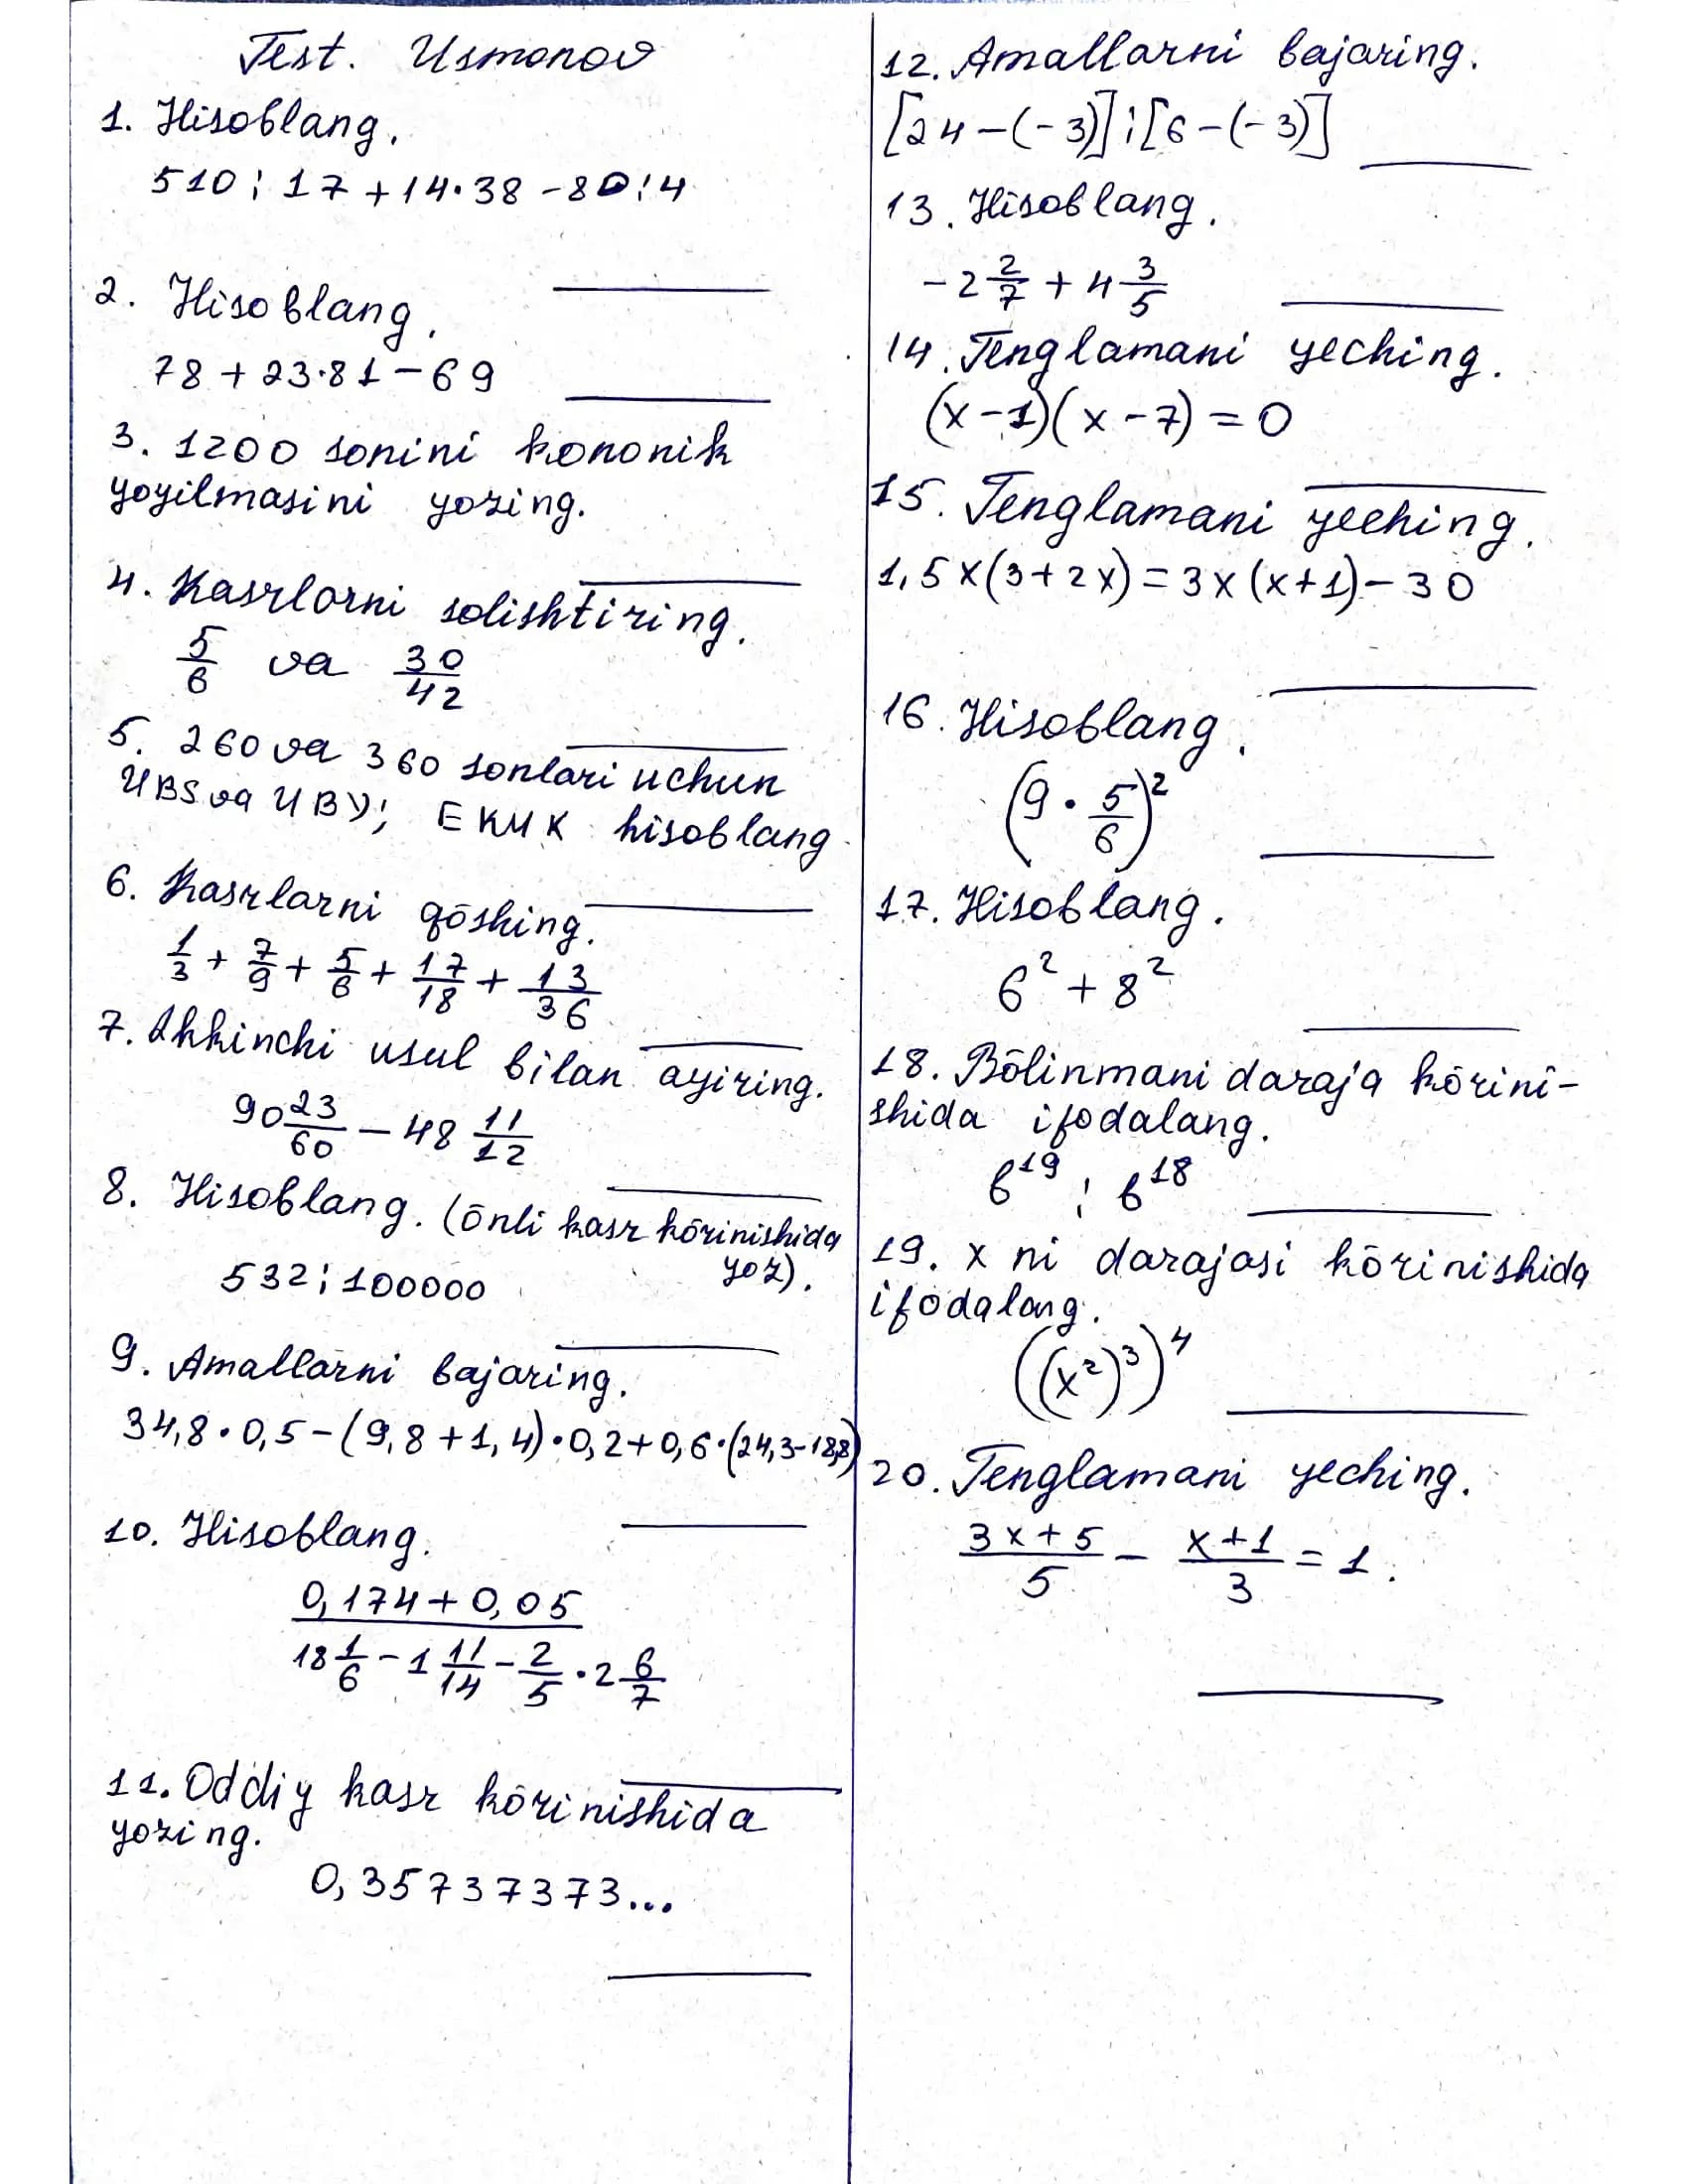 Test. Usmonov
1. Hisoblang.
510 : 17 + 14·38 - 80 : 4
2. Hisoblang.
78 + 23·81 - 69
3. 1200 sonini kononik
yoyilmasini yozing.
4. Kasrlarni solishtiring.
5/6 va 30/42
5. 260 va 360 sonlari uchun
UBS va UBY; EKUK hisoblang
6. Kasrlarni qōshing.
1/3 + 7/9 + 5/6 + 17/18 + 13/36
7. Ikkinchi usul bilan ayiring.
90 23/60 - 48 11/12
8. Hisoblang. (ōnli kasr kōrinishida
yoz).
532 : 100000
9. Amallarni bajaring.
34,8 · 0,5 - (9,8 + 1,4) · 0,2 + 0,6 · (24,3 - 18,8)
10. Hisoblang.
0,174 + 0,05
18 1/6 - 1 11/14 - 2/5 · 2 6/7
11. Oddiy kasr kōrinishida
yozing.
0,35737373...
12. Amallarni bajaring.
[24 - (-3)] : [6 - (-3)]
13. Hisoblang.
-2 2/7 + 4 3/5
14. Tenglamani yeching.
(x - 1)(x - 7) = 0
15. Tenglamani yeching.
1,5x(3 + 2x) = 3x(x + 1) - 30
16. Hisoblang.
(9 · 5/6)²
17. Hisoblang.
6² + 8²
18. Bōlinmani daraja kōrini-
shida ifodalang.
b¹⁹ : b¹⁸
19. x ni darajasi kōrinishida
ifodalang.
((x²)³)⁴
20. Tenglamani yeching.
(3x + 5)/5 - (x + 1)/3 = 1.